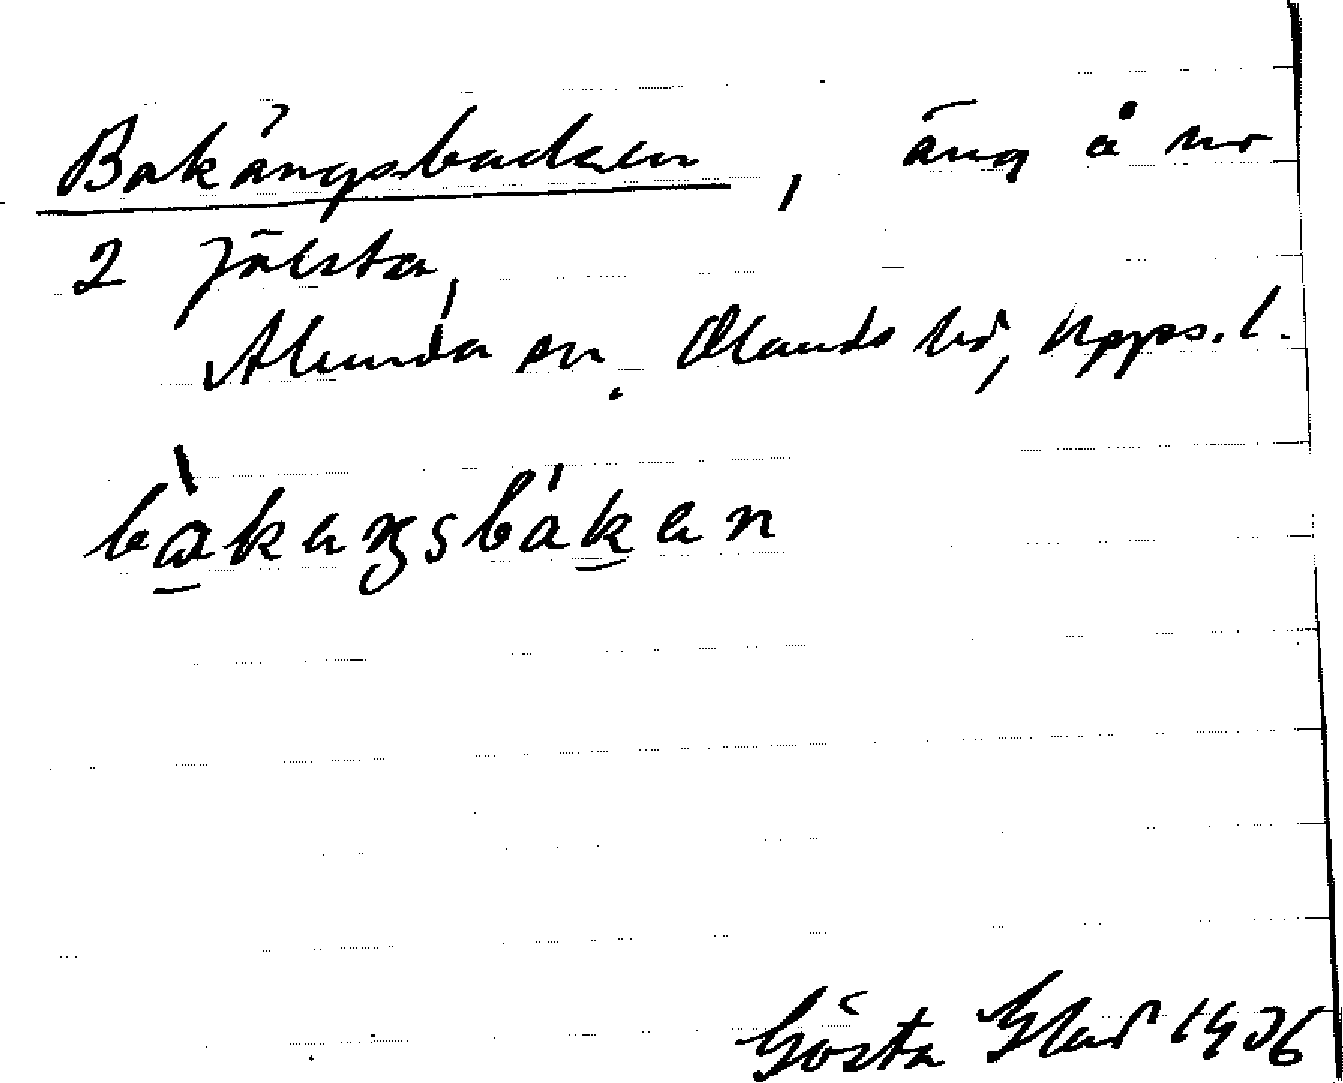 Bakängsbacken, äng å nr
2 Jälsta,
Alunda sn. Olands hd, Upps. l.
bàkaŋsbákan
Gösta Elad 1936